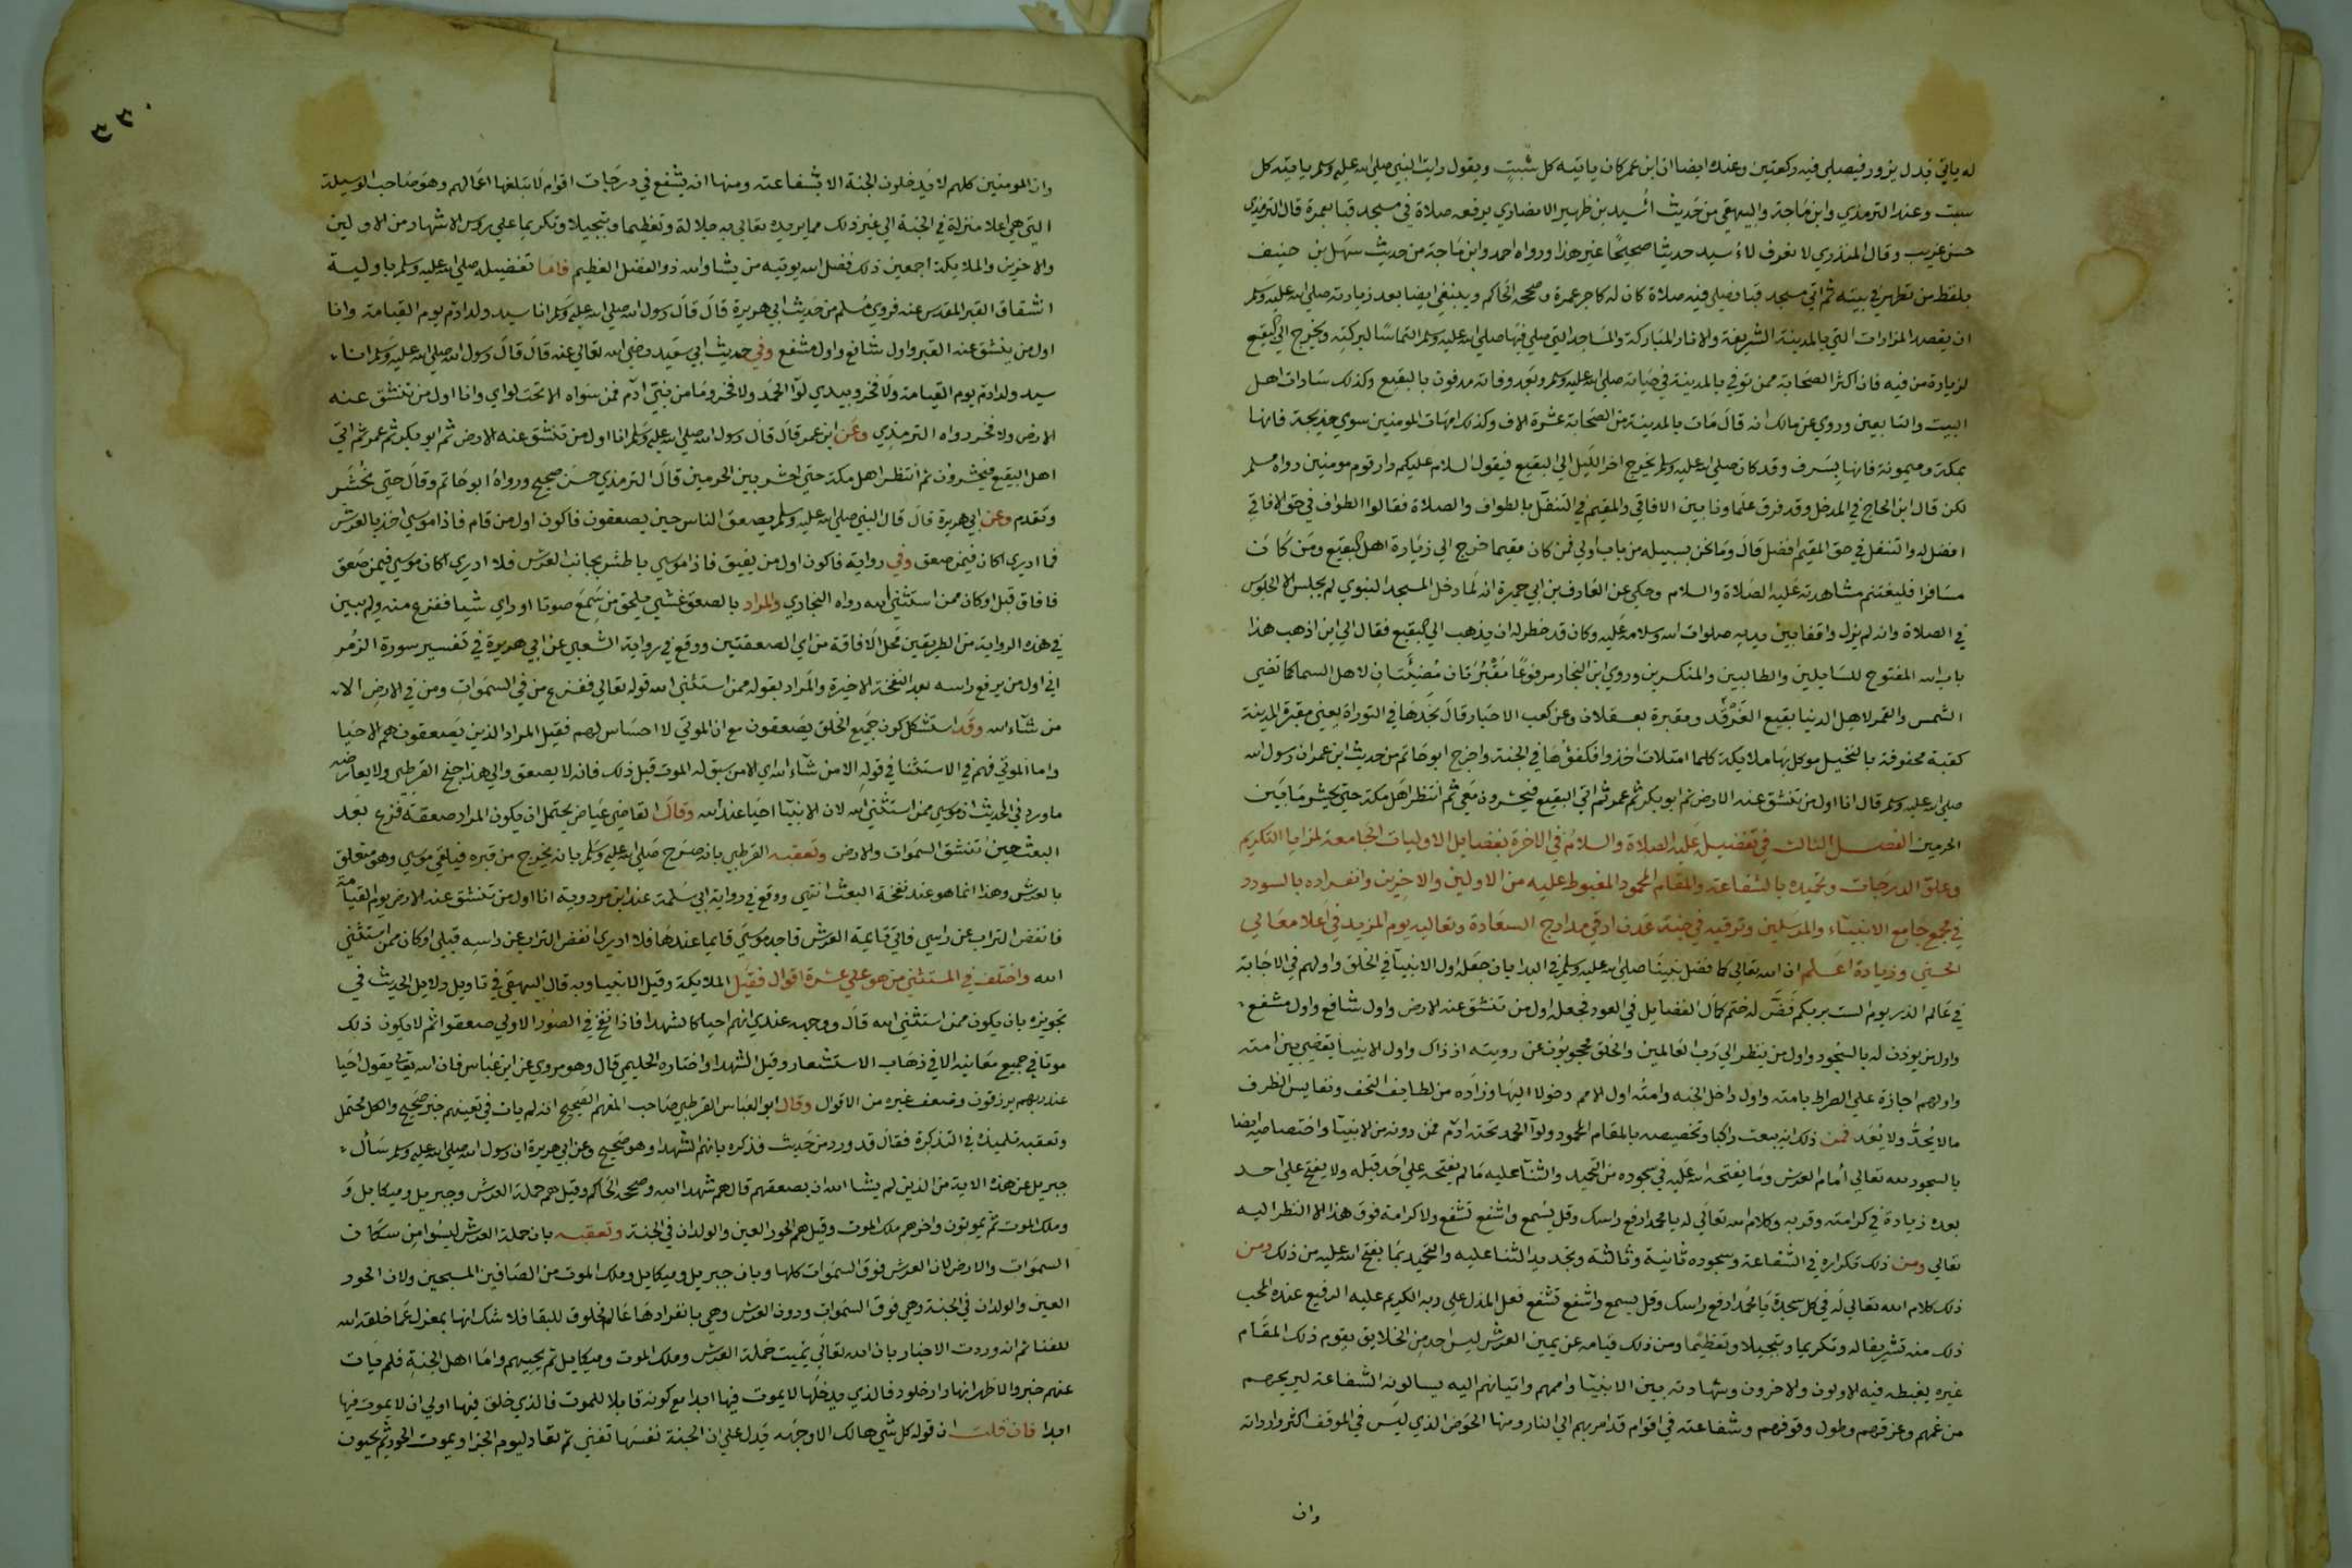 له ياتي بدل يزور فيصلي فيه ركعتين وعنده ايضا ان ابن عمر كان ياتيه كل سبت ويقول رايت النبي صلي الله عليه وسلم ياتيه كل
سبت وعند الترمذي وابن ماجة والبيهقي من حديث اسيد بن ظهير الانصاري يرفعه صلاة في مسجد قبا بعمرة قال الترمذي
حسن غريب وقال المنذري لا نعرف لاسيد حديثا صحيحا غير هذا ورواه احمد وابن ماجة من حديث سهل بن حنيف
بلفظ من تطهر في بيته ثم اتي مسجد قبا فصلي فيه صلاة كان له كاجر عمرة وصححه الحاكم وينبغي ايضا بعد زيارته صلي الله عليه وسلم
ان يقصد المزارات التي بالمدينة الشريفة والاثار المباركة والمساجد التي صلي فيها صلي الله عليه وسلم التماسا لبركته ويخرج الي البقيع
لزيارة من فيه فان اكثر الصحابة ممن توفي بالمدينة في حياته صلي الله عليه وسلم وبعد وفاته مدفون بالبقيع وكذلك سادات اهل
البيت والتابعين وروي عن مالك انه قال مات بالمدينة من الصحابة عشرة الاف وكذلك امهات المومنين سوي خديجة فانها
بمكة وميمونة فانها بسرف وقد كان صلي الله عليه وسلم يخرج اخر الليل الي البقيع فيقول السلام عليكم دار قوم مومنين رواه مسلم
لكن قال ابن الحاج في المدخل وقد فرق علماونا بين الافاقي والمقيم في التنفل بالطواف والصلاة فقالوا الطواف في حق الافاقي
افضل له والتنفل في حق المقيم افضل قال وما نحن بسبيله من باب اولي فمن كان مقيما خرج الي زيارة اهل البقيع ومن كان
مسافرا فليغتنم مشاهدته عليه الصلاة والسلام وحكي عن العارف بن ابي جمرة انه لما دخل المسجد النبوي لم يجلس الا الجلوس
في الصلاة وانه لم يزل واقفا بين يديه صلوات الله وسلامه عليه وكان قد خطر له ان يذهب الي البقيع فقال الي اين اذهب هذا
باب الله المفتوح للسايلين والطالبين والمنكسرين وروي ابن النجار مرفوعا مقبرتان مضيئتان لاهل السما كما تضي
الشمس والقمر لاهل الدنيا بقيع الغرقد ومقبرة بعسقلان وعن كعب الاحبار قال نجدها في التوراة يعني مقبرة المدينة
كقبة محفوفة بالنخيل موكل بها ملايكة كلما امتلات اخذوا فكفؤها في الجنة واخرج ابو حاتم من حديث ابن عمر ان رسول الله
صلي الله عليه وسلم قال انا اول من تنشق عنه الارض ثم ابو بكر ثم عمر ثم اتي البقيع فيحشرون معي ثم انتظر اهل مكة حتي يحشر ما بين
الحرمين الفصل الثالث في تفضيله عليه الصلاة والسلام في الاخرة بفضايل الاوليات الجامعة لمزايا التكريم
وعلو الدرجات وتحميده بالشفاعة والمقام المحمود المغبوط عليه من الاولين والاخرين وانفراده بالسودد
في مجمع جامع الانبياء والمرسلين وترقيه في جنة عدن ارقي مدارج السعادة وتعاليه يوم المزيد في اعلا معالي
الحسني وزيادة اعلم ان الله تعالي كما فضل نبينا صلي الله عليه وسلم في البدا بان جعله اول الانبيا في الخلق واولهم في الاجابة
في عالم الذر يوم الست بربكم فض له ختم كمال الفضايل في العود فجعله اول من تنشق عنه الارض واول شافع واول مشفع
واول من يوذن له بالسجود واول من ينظر الي رب العالمين والخلق محجوبون عن رويته اذ ذاك واول الانبيا يقضي بين امته
واولهم اجازة علي الصراط بامته واول داخل الجنه وامته اول الامم دخولا اليها وزاده من لطايف التحف ونفايس الطرف
ما لا يحد ولا يعد فمن ذلك انه يبعث راكبا وتخصيصه بالمقام المحمود ولوا الحمد تحته ادم فمن دونه من الانبيا واختصاصه ايضا
بالسجود لله تعالي امام العرش وما يفتحه الله عليه في سجوده من التحميد والثنا عليه ما لم يفتحه علي احد قبله ولا يفتح علي احد
بعده زيادة في كرامته وقربه وكلام الله تعالي له يا محمد ارفع راسك وقل يسمع واشفع تشفع ولا كرامة فوق هذا الا النظر اليه
تعالي ومن ذلك تكراره في الشفاعة وسجوده ثانية وثالثة وتجديد الثنا عليه والتحميد بما يفتح الله عليه من ذلك ومن
ذلك كلام الله تعالي له في كل سجدة يا محمد ارفع راسك وقل يسمع واشفع تشفع فعل المدل علي ربه الكريم عليه الرفيع عنده المحب
ذلك منه تشريفا له وتكريما وتبجيلا وتعظيما ومن ذلك قيامه عن يمين العرش ليس احد من الخلايق يقوم ذلك المقام
غيره يغبطه فيه الاولون والاخرون وشهادته بين الانبيا واممهم واتيانهم اليه يسالونه الشفاعة ليريحهم
من غمهم وعرقهم وطول وقوفهم وشفاعته في اقوام قد امر بهم الي النار ومنها الحوض الذي ليس في الموقف اكثر واردا منه
وان
٣٣٠
وان المومنين كلهم لا يدخلون الجنة الا بشفاعته ومنها انه يشفع في درجات اقوام لا تبلغها اعمالهم وهو صاحب الوسيلة
التي هي اعلا منزلة في الجنة الي غير ذلك مما يزيده تعالي به جلالة وتعظيما وتبجيلا وتكريما علي روس الاشهاد من الاولين
والاخرين والملايكة اجمعين ذلك فضل الله يوتيه من يشا والله ذو الفضل العظيم فاما تفضيله صلي الله عليه وسلم باولية
انشقاق القبر المقدس عنه فروي مسلم من حديث ابي هريرة قال قال رسول الله صلي الله عليه وسلم انا سيد ولد ادم يوم القيامة وانا
اول من ينشق عنه القبر واول شافع واول مشفع وفي حديث ابي سعيد رضي الله تعالي عنه قال قال رسول الله صلي الله عليه وسلم انا
سيد ولد ادم يوم القيامة ولا فخر وبيدي لوا الحمد ولا فخر وما من نبي ادم فمن سواه الا تحت لواي وانا اول من تنشق عنه
الارض ولا فخر رواه الترمذي وعن ابن عمر قال قال رسول الله صلي الله عليه وسلم انا اول من تنشق عنه الارض ثم ابو بكر ثم عمر ثم اتي
اهل البقيع فيحشرون ثم انتظر اهل مكة حتي احشر بين الحرمين قال الترمذي حسن صحيح ورواه ابو حاتم وقال حتي يحشر
وتقدم وعن ابي هريرة قال قال النبي صلي الله عليه وسلم يصعق الناس حين يصعقون فاكون اول من قام فاذا موسي اخذ بالعرش
فما ادري اكان فيمن صعق وفي رواية فاكون اول من يفيق فاذا موسي باطش بجانب العرش فلا ادري اكان موسي فيمن صعق
فافاق قبلي او كان ممن استثني الله رواه البخاري والمراد بالصعق غشي يلحق من سمع صوتا او راي شيا ففزع منه ولم يبين
في هذه الرواية من الطريقين محل الافاقة من اي الصعقتين ووقع في رواية الشعبي عن ابي هريرة في تفسير سورة الزمر
اني اول من يرفع راسه بعد النفخة الاخيرة والمراد بقوله ممن استثني الله قوله تعالي ففزع من في السموات ومن في الارض الا
من شاء الله وقد استشكل كون جميع الخلق يصعقون مع ان الموتي لا احساس لهم فقيل المراد الذين يصعقون هم الاحيا
واما الموتي فهم في الاستثنا في قوله الا من شاء الله اي الا من سبق له الموت قبل ذلك فانه لا يصعق والي هذا جنح القرطبي ولا يعارضه
ما ورد في الحديث ان موسي ممن استثني الله لان الانبيا احيا عند الله وقال القاضي عياض يحتمل ان يكون المراد صعقة فزع بعد
البعث حين تنشق السموات والارض وتعقبه القرطبي بانه صرح صلي الله عليه وسلم بانه يخرج من قبره فيلقي موسي وهو متعلق
بالعرش وهذا انما هو عند نفخة البعث انتهي ووقع في رواية ابي سلمة عند ابن مردوية انا اول من تنشق عنه الارض يوم القيامة
فانفض التراب عن راسي فاتي قايمة العرش فاجد موسي قايما عندها فلا ادري انفض التراب عن راسه قبلي او كان ممن استثني
الله واختلف في المستثني من هو علي عشرة اقوال فقيل الملايكة وقيل الانبيا وبه قال البيهقي في تاويل الحديث في
تجويزه بان يكون ممن استثني الله قال ووجهه عندي انهم احيا كالشهدا فاذا نفخ في الصور الاولي صعقوا ثم لا يكون ذلك
موتا في جميع معانيه الا في ذهاب الاستشعار وقيل الشهدا واختاره الحليمي قال وهو مروي عن ابن عباس فان الله تعالي يقول احيا
عند ربهم يرزقون وضعف غيره من الاقوال وقال ابو العباس القرطبي صاحب المفهم الصحيح انه لم يات في تعيينهم خبر صحيح والكل محتمل
وتعقبه تلميذه في التذكرة فقال قد ورد من حديث فذكره بانهم الشهدا وهو صحيح وعن ابي هريرة ان رسول الله صلي الله عليه وسلم سأل
جبريل عن هذه الاية من الذين لم يشا الله ان يصعقهم قال هم شهدا الله وصححه الحاكم وقيل هم حملة العرش وجبريل وميكايل و
وملك الموت ثم يموتون واخرهم ملك الموت وقيل هم الحور العين والولدان في الجنة وتعقبه بان حملة العرش ليسوا من سكان
السموات والارض لان العرش فوق السموات كلها وبان جبريل وميكايل وملك الموت من الصافين المسبحين ولان الحور
العين والولدان في الجنة وهي فوق السموات ودون العرش وهي بانفرادها عالم مخلوق للبقا فلا شك انها بمعزل عما خلقه الله
للفنا ثم انه وردت الاخبار بان الله تعالي يميت حملة العرش وملك الموت وميكايل ثم يحييهم واما اهل الجنة فلم يات
عنهم خبر والاظهر انها دار خلود فالذي يدخلها لا يموت فيها ابدا مع كونه قابلا للموت فالذي خلق فيها اولي ان لا يموت فيها
ابدا فان قلت ان قوله كل شي هالك الا وجهه يدل علي ان الجنة نفسها تفني ثم تعاد ليوم الجزا ويموت الحور ثم يحيون